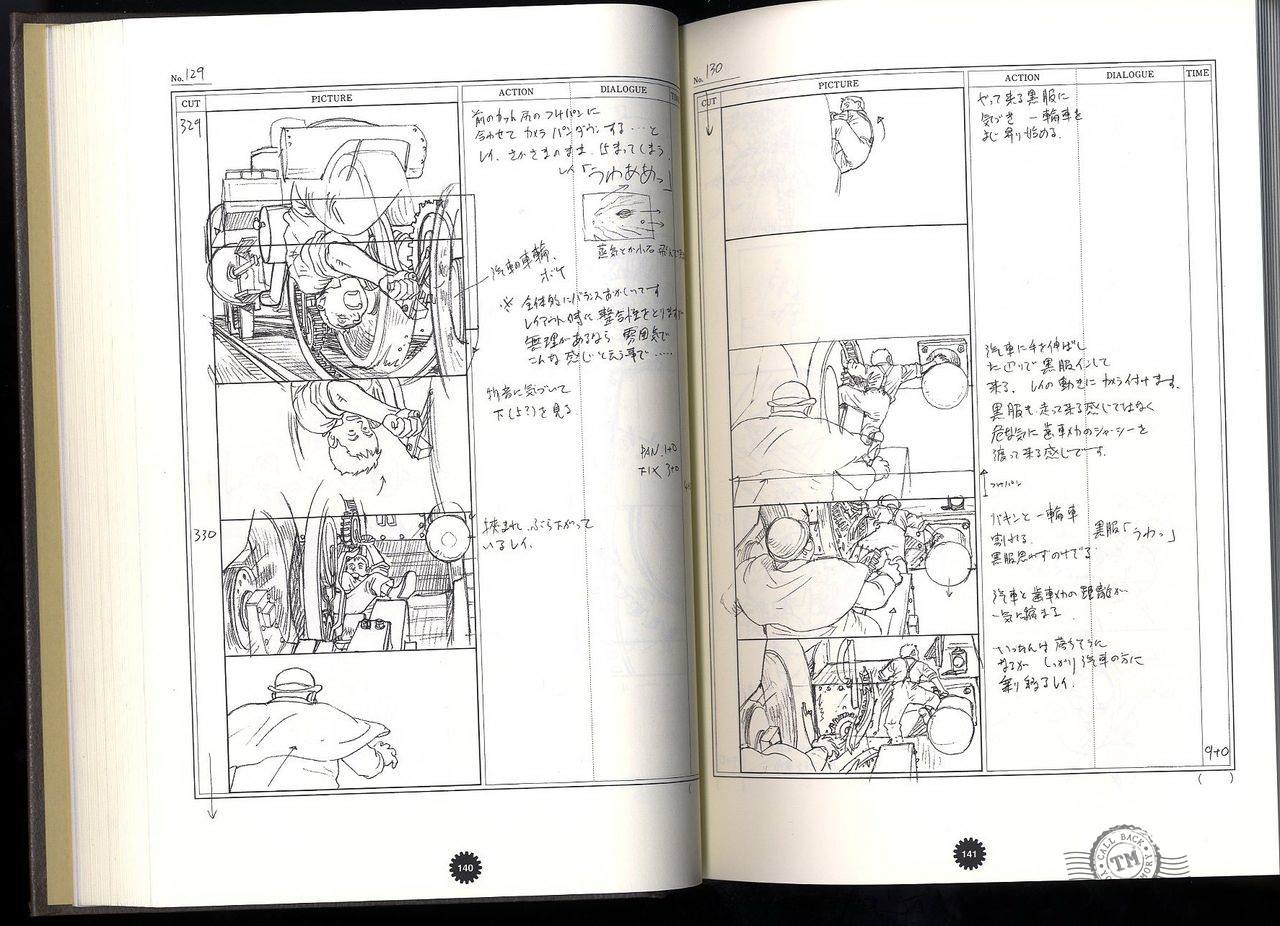 No. 129
CUT
PICTURE
ACTION
DIALOGUE
329
前のカット尻の
合わせて カメラ パンダウンする…と
レイ、さかさまのまま、止まってしまう
レイ「うわああっ」
汽車の車輪、
ボケ
※ 全体的にバランスおかしいです
レイアウト時に整合性をとりますが
無理があるなら 雰囲気で
こんな感じと云う事で……
に気づいて
下(上?)を見る
PAN 1+0
FIX 3+0
330
挟まれ、ぶら下がって
いるレイ.
140
No. 130
CUT
PICTURE
ACTION
DIALOGUE
TIME
やって来る黒服に
気づき 一輪車を
よじ昇り始める.
汽車に手を伸ばし
た辺りで黒服インして
来る. レイの動きにカメラ付けます.
黒服も走って来る感じではなく
危な気に歯車メカのシャーシーを
渡って来る感じです.
バキンと一輪車
割れる.
黒服思わずのけぞる
黒服「うわっ」
汽車と歯車メカの距離が
一気に縮まる
いったんは落ちそうに
なるが しっかり汽車の方に
乗り移るレイ.
9+0
( )
141
CALL BACK
TM